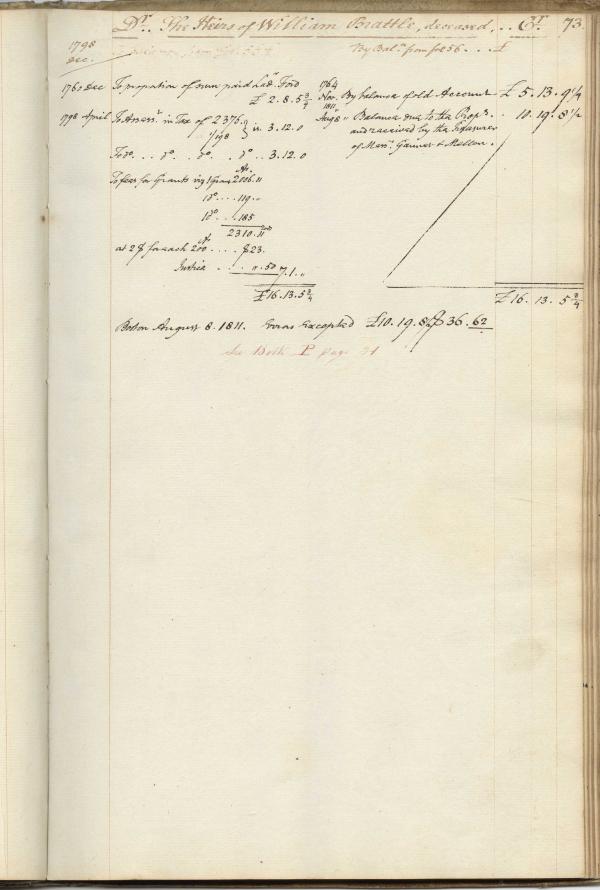 Dr. The Heirs of William Brattle, deceased, .. Cr. 73
1798
Dec.
By Bale. from fol 56 ... £
1760 Dec To propotion of sum paid Lad. Ford
£ 2.8.5 3/4
1798 April To Assesst. in Tax of 2376.9
1/98 } is. 3.12.0
To do. .. do. .. do. .. do .. 3.12.0
To fees for Grants viz 1 Gran 2006.11
do .... 119..
do ... 185
2310.11
at 2$ for each 200 .... $23.
Justice .... 0.50 7.1.„
£16.13.5 3/4
1764
Nov. By balance of old Account .. £ 5.13.9 1/4
1811
Aug 8 " Balance due to the Propr. .. 10.19.8 1/2
and received by the Treasurer
of Mesrs. Ganner & Mellen.
£16.13.5 3/4
Boston August 8. 1811. Errors Excepted £10.19.8 1/2 $36.62
See Book P page 31